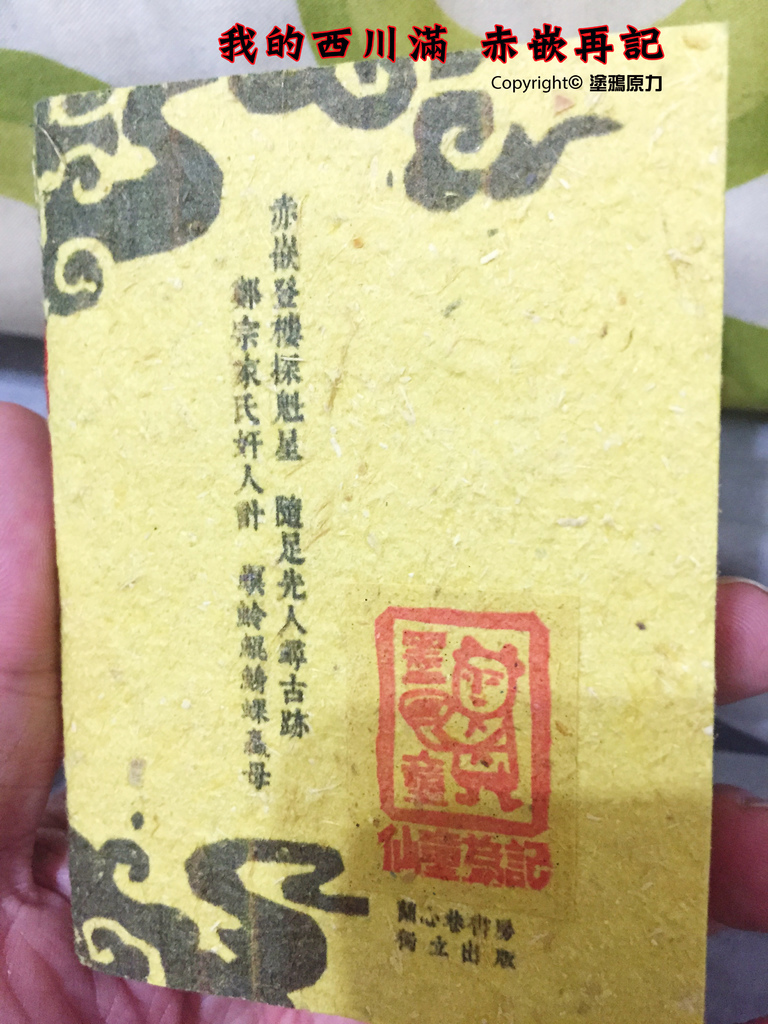 我的西川滿 赤嵌再記
Copyright© 塗鴉原力
赤嵌登樓採魁星 隨足先人尋古跡
鄭宗家氏奸人計 螟蛉鯤鯓蜾蠃母
童
仙童草記
蘭心巷書房
獨立出版